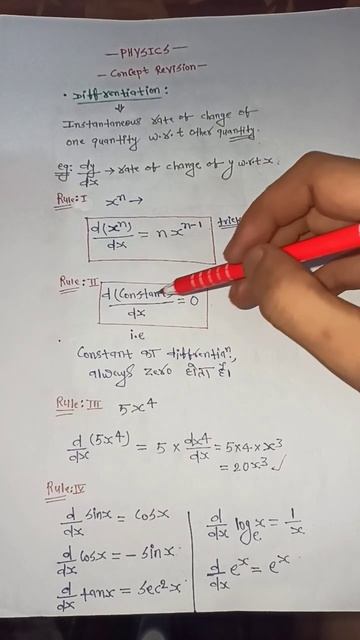 — PHYSICS —
— Concept Revision —
• Diffrentiation :
⇓
Instantaneous rate of change of
one quantity w.r.t other quantity.
eg: dy/dx → rate of change of y w.r.t x.
Rule: I x^n →
d(x^n)/dx = n x^(n-1) trick
Rule: II
d(Constant)/dx = 0
i.e
Constant का diffrentiaⁿ,
always zero होता है।
Rule: III 5x^4
d/dx (5x^4) = 5 × dx4/dx = 5×4×x^3
= 20x^3 ✓
Rule: IV
d/dx sinx = cosx
d/dx cosx = - sinx
d/dx tanx = sec^2x
d/dx log_e x = 1/x
d/dx e^x = e^x